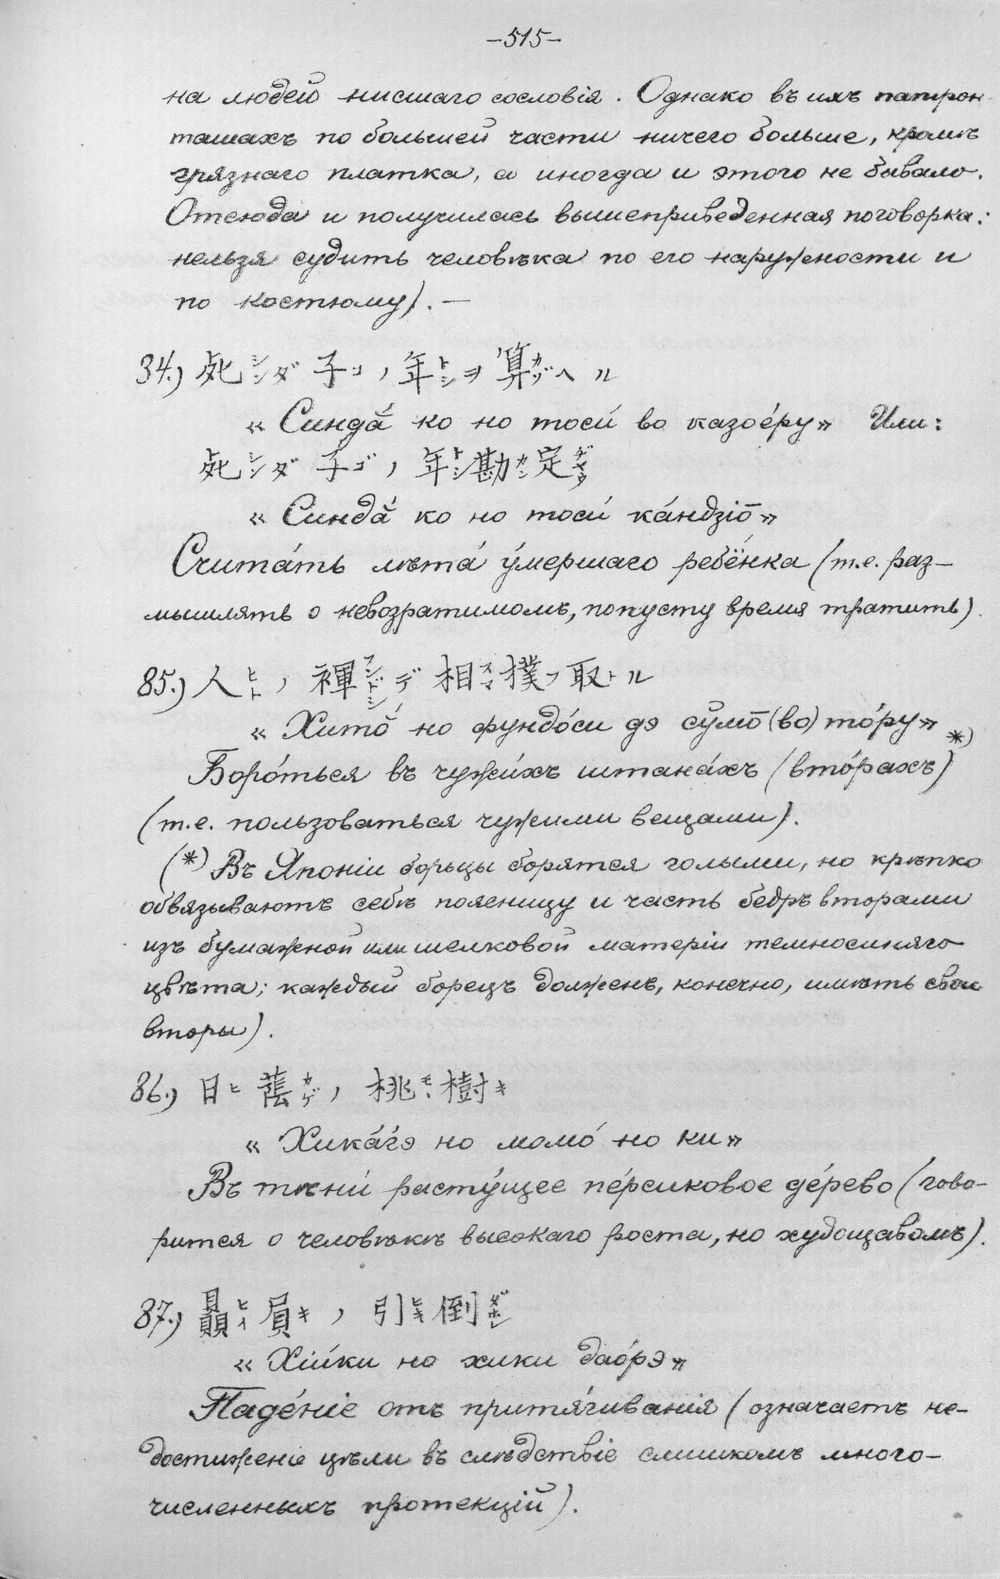 –515–
на людей нисшаго сословія. Однако въ ихъ патрон-
ташахъ по большей части ничего больше, кромѣ
грязнаго платка, а иногда и этого не бывало.
Отсюда и получилась вышеприведенная поговорка:
нельзя судить человѣка по его наружности и
по костюму). —
34.) 死シンダ子コノ年トシヲ算カゾヘル
« Синда́ ко но тоси́ во казоéру» Или:
死シンダ子ゴノ年トシ勘カン定ヂヤウ
« Синда́ ко но тоси́ ка́ндзіō»
Счита́ть лѣта́ у́мершаго ребёнка (т.е. раз-
мышлять о невозратимомъ, попусту время тратить).
85.) 人ヒトノ褌フンドシデ相スマ撲フ取トル
« Хито́ но фундо́си дэ сӯмō (во) то́ру» *)
Боро́ться въ чужи́хъ штана́хъ (вто́рахъ)
(т.е. пользоваться чужими вещами).
(*) Въ Японіи борьцы борятся голыми, но крѣпко
обвязываютъ себѣ поясницу и часть бедръ вторами
изъ бумажной или шелковой матеріи темносиняго
цвѣта; каждый борецъ долженъ, конечно, имѣть свои
вторы).
86.) 日ヒ蔭カゲノ桃モヽ樹キ
« Хика́гэ но момо́ но ки»
Въ тѣни́ расту́щее пе́рсиковое де́рево (гово-
рится о человѣкѣ высокаго роста, но худощавомъ).
87.) 贔ヒイ屓キノ引ヒキ倒ダホレ
« Хіи́ки но хики дао́рэ»
Паде́ніе отъ притя́гиванія (означаетъ не-
достиженіе цѣли въ слѣдствіе слишкомъ много-
численныхъ протекцій).